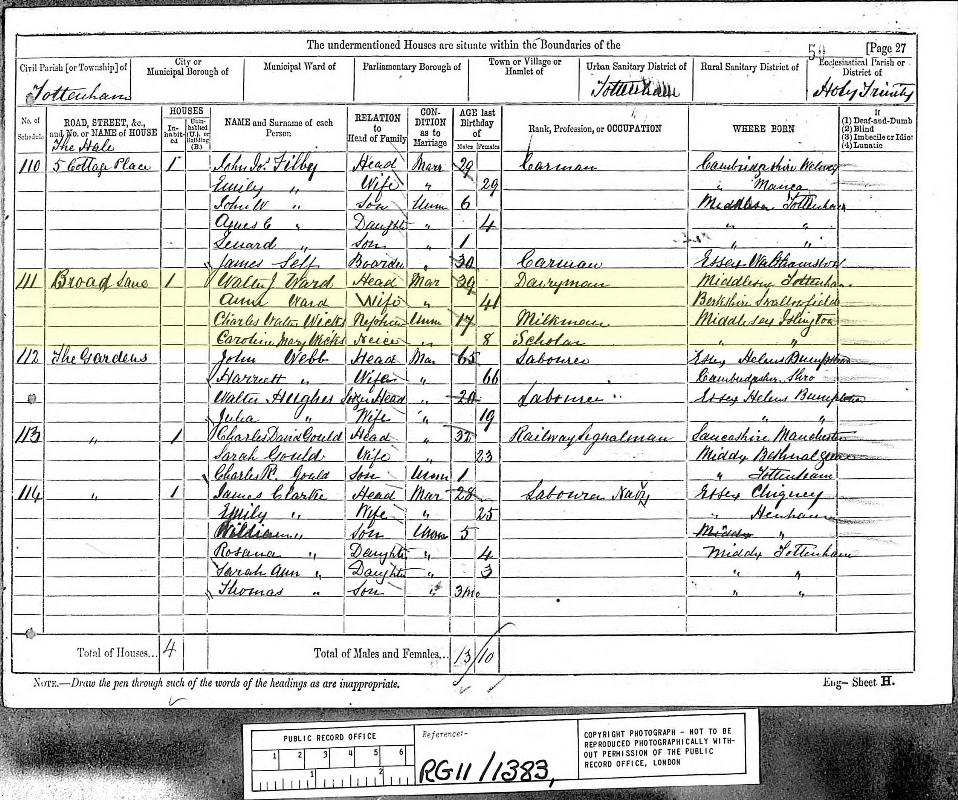 The undermentioned Houses are situate within the Boundaries of the
59 [Page 27
Civil Parish [or Township] of
City or Municipal Borough of
Municipal Ward of
Parliamentary Borough of
Town or Village or Hamlet of
Urban Sanitary District of
Rural Sanitary District of
Ecclesiastical Parish or District of
Tottenham
Tottenham
Holy Trinity
No. of Schedule
ROAD, STREET, &c., and No. or NAME of HOUSE
HOUSES
In-habit-ed
Unin-habited (U.), or Building (B.)
NAME and Surname of each Person
RELATION to Head of Family
CON-DITION as to Marriage
AGE last Birthday of
Males Females
Rank, Profession, or OCCUPATION
WHERE BORN
If
(1) Deaf-and-Dumb
(2) Blind
(3) Imbecile or Idiot
(4) Lunatic
The Hale
110 5 Cottage Place 1 John Filby Head Marr 29 Carman Cambridgeshire
Emily " Wife " 29 " Manea
John W " Son Unm 6 Middlesex Tottenham
Agnes E " Daughtr 4 " "
Lenard " Son 1 " "
James Self Boarder " 30 Carman Essex Walthamstow
111 Broad Lane 1 Walter J Ward Head Mar 39 Dairyman Middlesex Tottenham
Anne Ward Wife " 41 Berkshire Swallowfield
Charles Walter Wicks Nephew Unm 17 Milkman Middlesex Islington
Caroline Mary Wicks Neice " 8 Scholar " "
112 The Gardens John Webb Head Mar 65 Labourer Essex Helens Bumpstead
Harriett " Wife " 66 Cambridgeshire
Walter Hughes Head " 20 Labourer " Essex Helens Bumpstead
Julia " Wife " 19 " "
113 " 1 Charles David Gould Head " 32 Railway Signalman Lancashire Manchester
Sarah Gould Wife " 23 Middx Bethnal Green
Charles R. Gould Son Unm 1 " Tottenham
114 " 1 James Clarke Head Mar 28 Labourer Navvy Essex Chigney
Emily " Wife " 25 " Henham
William " Son Unm 5 Middx "
Rosana " Daughter " 4 Middx Tottenham
Sarah Ann " Daughter " 3 " "
Thomas " Son " 3mo " "
Total of Houses... 4
Total of Males and Females... 13 10
NOTE.—Draw the pen through such of the words of the headings as are inappropriate.
Eng— Sheet H.
PUBLIC RECORD OFFICE
1 2 3 4 5 6
1 2
Reference:-
RG11/1383,
COPYRIGHT PHOTOGRAPH - NOT TO BE
REPRODUCED PHOTOGRAPHICALLY WITH-
OUT PERMISSION OF THE PUBLIC
RECORD OFFICE, LONDON